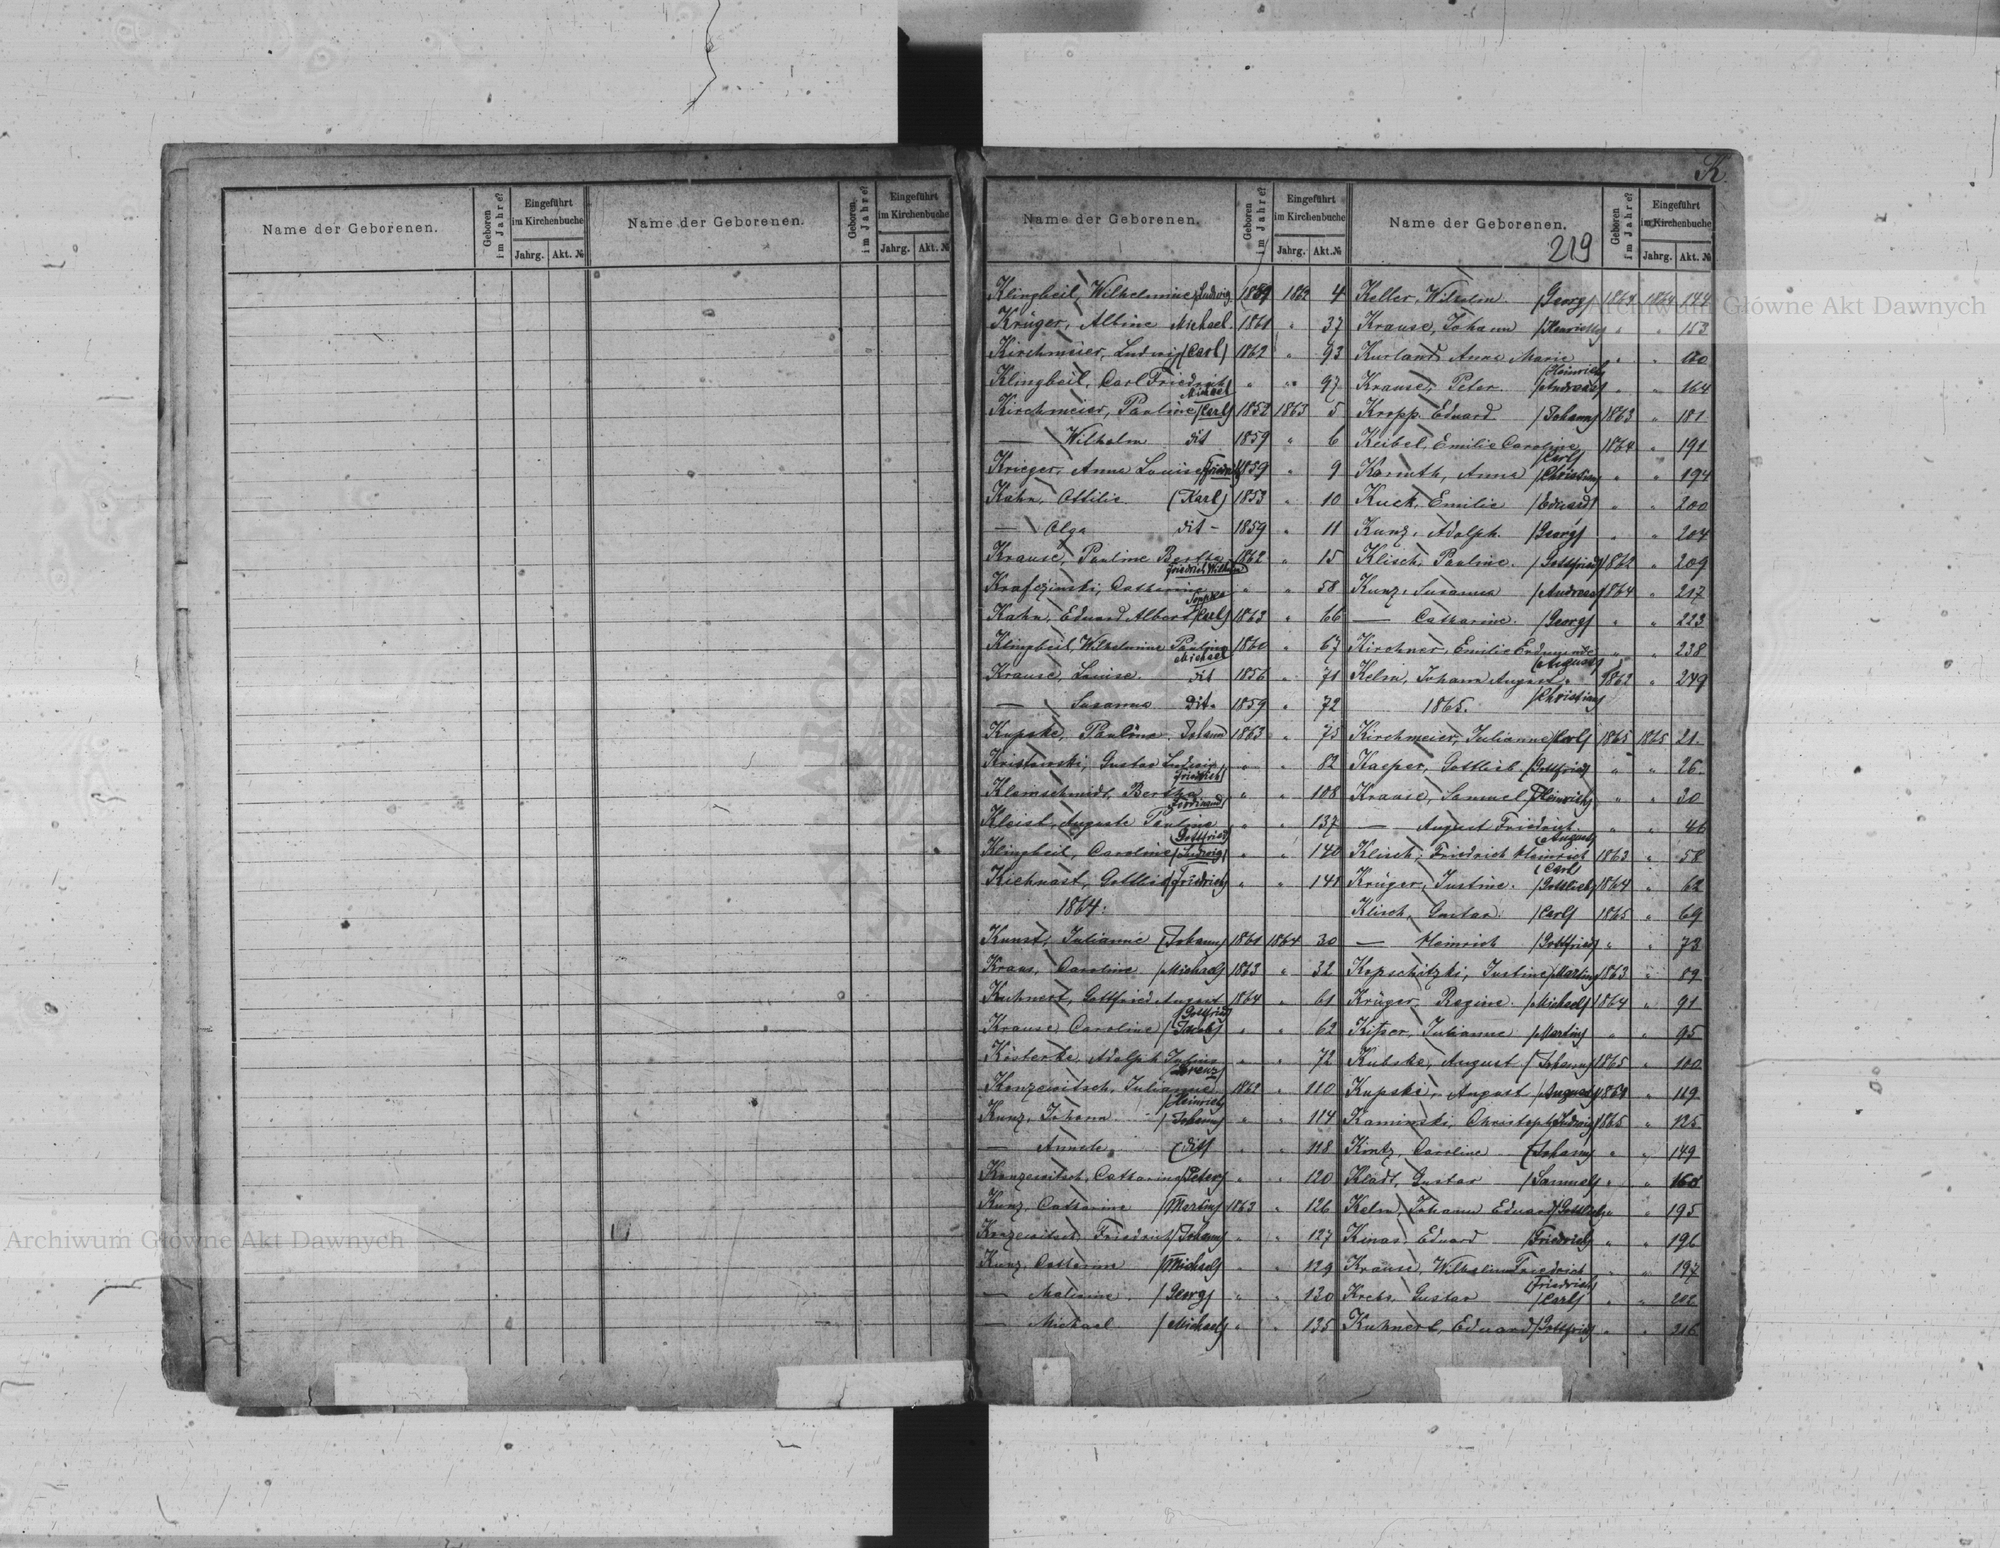 K.
Name der Geborenen. Geboren im Jahre? Eingeführt im Kirchenbuche Jahrg. Akt. №
Name der Geborenen. Geboren im Jahre? Eingeführt im Kirchenbuche Jahrg. Akt. №
Name der Geborenen. Geboren im Jahre? Eingeführt im Kirchenbuche Jahrg. Akt. №
Name der Geborenen. Geboren im Jahre? Eingeführt im Kirchenbuche Jahrg. Akt. №
219
Klingbeil, Wilhelmine (Ludwig 1862 4
Krüger, Albine Michael. 1861 " 37
Kirchmeier, Ludwig (Carl) 1862 " 93
Klingbeil, Carl Friedrich " " 97
Michael
Kirchmeier, Pauline (Carl) 1852 1863 5
— Wilhelm dit 1859 " 6
Krieger, Anna Louise (Friedrich) 1859 " 9
Kahn, Ottilie (Karl) 1853 " 10
— Olga dit - 1859 " 11
Krause, Pauline Bertha 1862 " 15
Friedrich Wilhelm
Catharine " " 58
Kahn, Eduard Albert (Carl) 1863 " 66
Klingbeil, Wilhelmine Pauline 1860 " 67
Michael
Krause, Louise. dit 1856 " 71
— Susanna dit. 1859 " 72
Kupske, Pauline. Johann 1863 " 75
Gustav Ludwig " " 82
Friedrich
Bertha " " 108
Ferdinand
Kleist, Auguste Pauline " " 137
Gottfried
Klingbeil, Caroline (Ludwig) " " 140
Kiehnast, Gottlieb (Friedrich) " " 141
1864:
Kunst, Julianne (Johann) 1861 1864 30
Kraus, Caroline (Michael) 1863 " 32
Kuhnert, Gottfried August 1864 " 61
(Gottfried)
Krause Caroline (Jacob) " " 62
Adolph Julius " " 72
Kenzewitsch, Julianne 1862 " 110
(Heinrich)
Kunz, Johann (Johann) " " 114
— (dit) " " 118
Kenzewitsch, Catharine (Peter) " " 120
Kunz, Catharine (Martin) 1863 " 126
Friedrich (Johann) " " 127
Kunz, Catharine (Michael) " " 129
— (Georg) " " 130
— Michael (Michael) " " 135
Keller, Wilhelm. (Georg) 1864 1864 144
Krause, Johann (Heinrich) " " 153
Kurland Anna Marie " " 160
(Heinrich)
Krause, Peter. (Andreas) " " 164
Kropp, Eduard. (Johann) 1863 " 181
Keibel, Emilie Caroline 1864 " 191
(Carl)
Anna (Christian) " " 194
Kuck, Emilie (Eduard) " " 200
Kunz, Adolph. (Georg) " " 204
Klisch, Pauline. (Gottfried) 1862 " 209
Kunz, Susanna (Andreas) 1864 " 217
— Catharine. (Georg) " " 223
Kirchner, Emilie Erdmunde " " 238
(August)
Kelm, Johann August. 1862 " 249
(Christian)
1865.
Kirchmeier, Julianne (Carl) 1865 1865 21.
Kasper, Gottlieb (Gottfried) " " 26.
Krause, Samuel (Heinrich) " " 30
— August Friedrich. " " 46
(August)
Klisch, Friedrich Heinrich 1863 " 58
(Carl)
Krüger, Justine. (Gottlieb) 1864 " 62
Klisch, Gustav. (Carl) 1865 " 69
— Heinrich (Gottfried) " " 73
Kopschitzki, Justine (Martin) 1863 " 89
Krüger, Regine. (Michael) 1864 " 91
Julianne (Martin) " " 95
Kubske, August. (Johann) 1865 " 100
Kupski, August (August) " 119
Kaminski, Christoph (Ludwig) 1865 " 125
Kintz, Caroline (Johann) " " 149
Kladt, Gustav (Samuel) " "
Kelm, Johann Eduard (Gottlieb) " " 195
Kinas, Eduard (Friedrich) " " 196
Krause, Wilhelm Friedrich " " 197
(Friedrich)
Krebs, Gustav (Carl) " " 202
Kuhnert, Eduard (Gottfried) " " 216
Archiwum Główne Akt Dawnych
Archiwum Główne Akt Dawnych